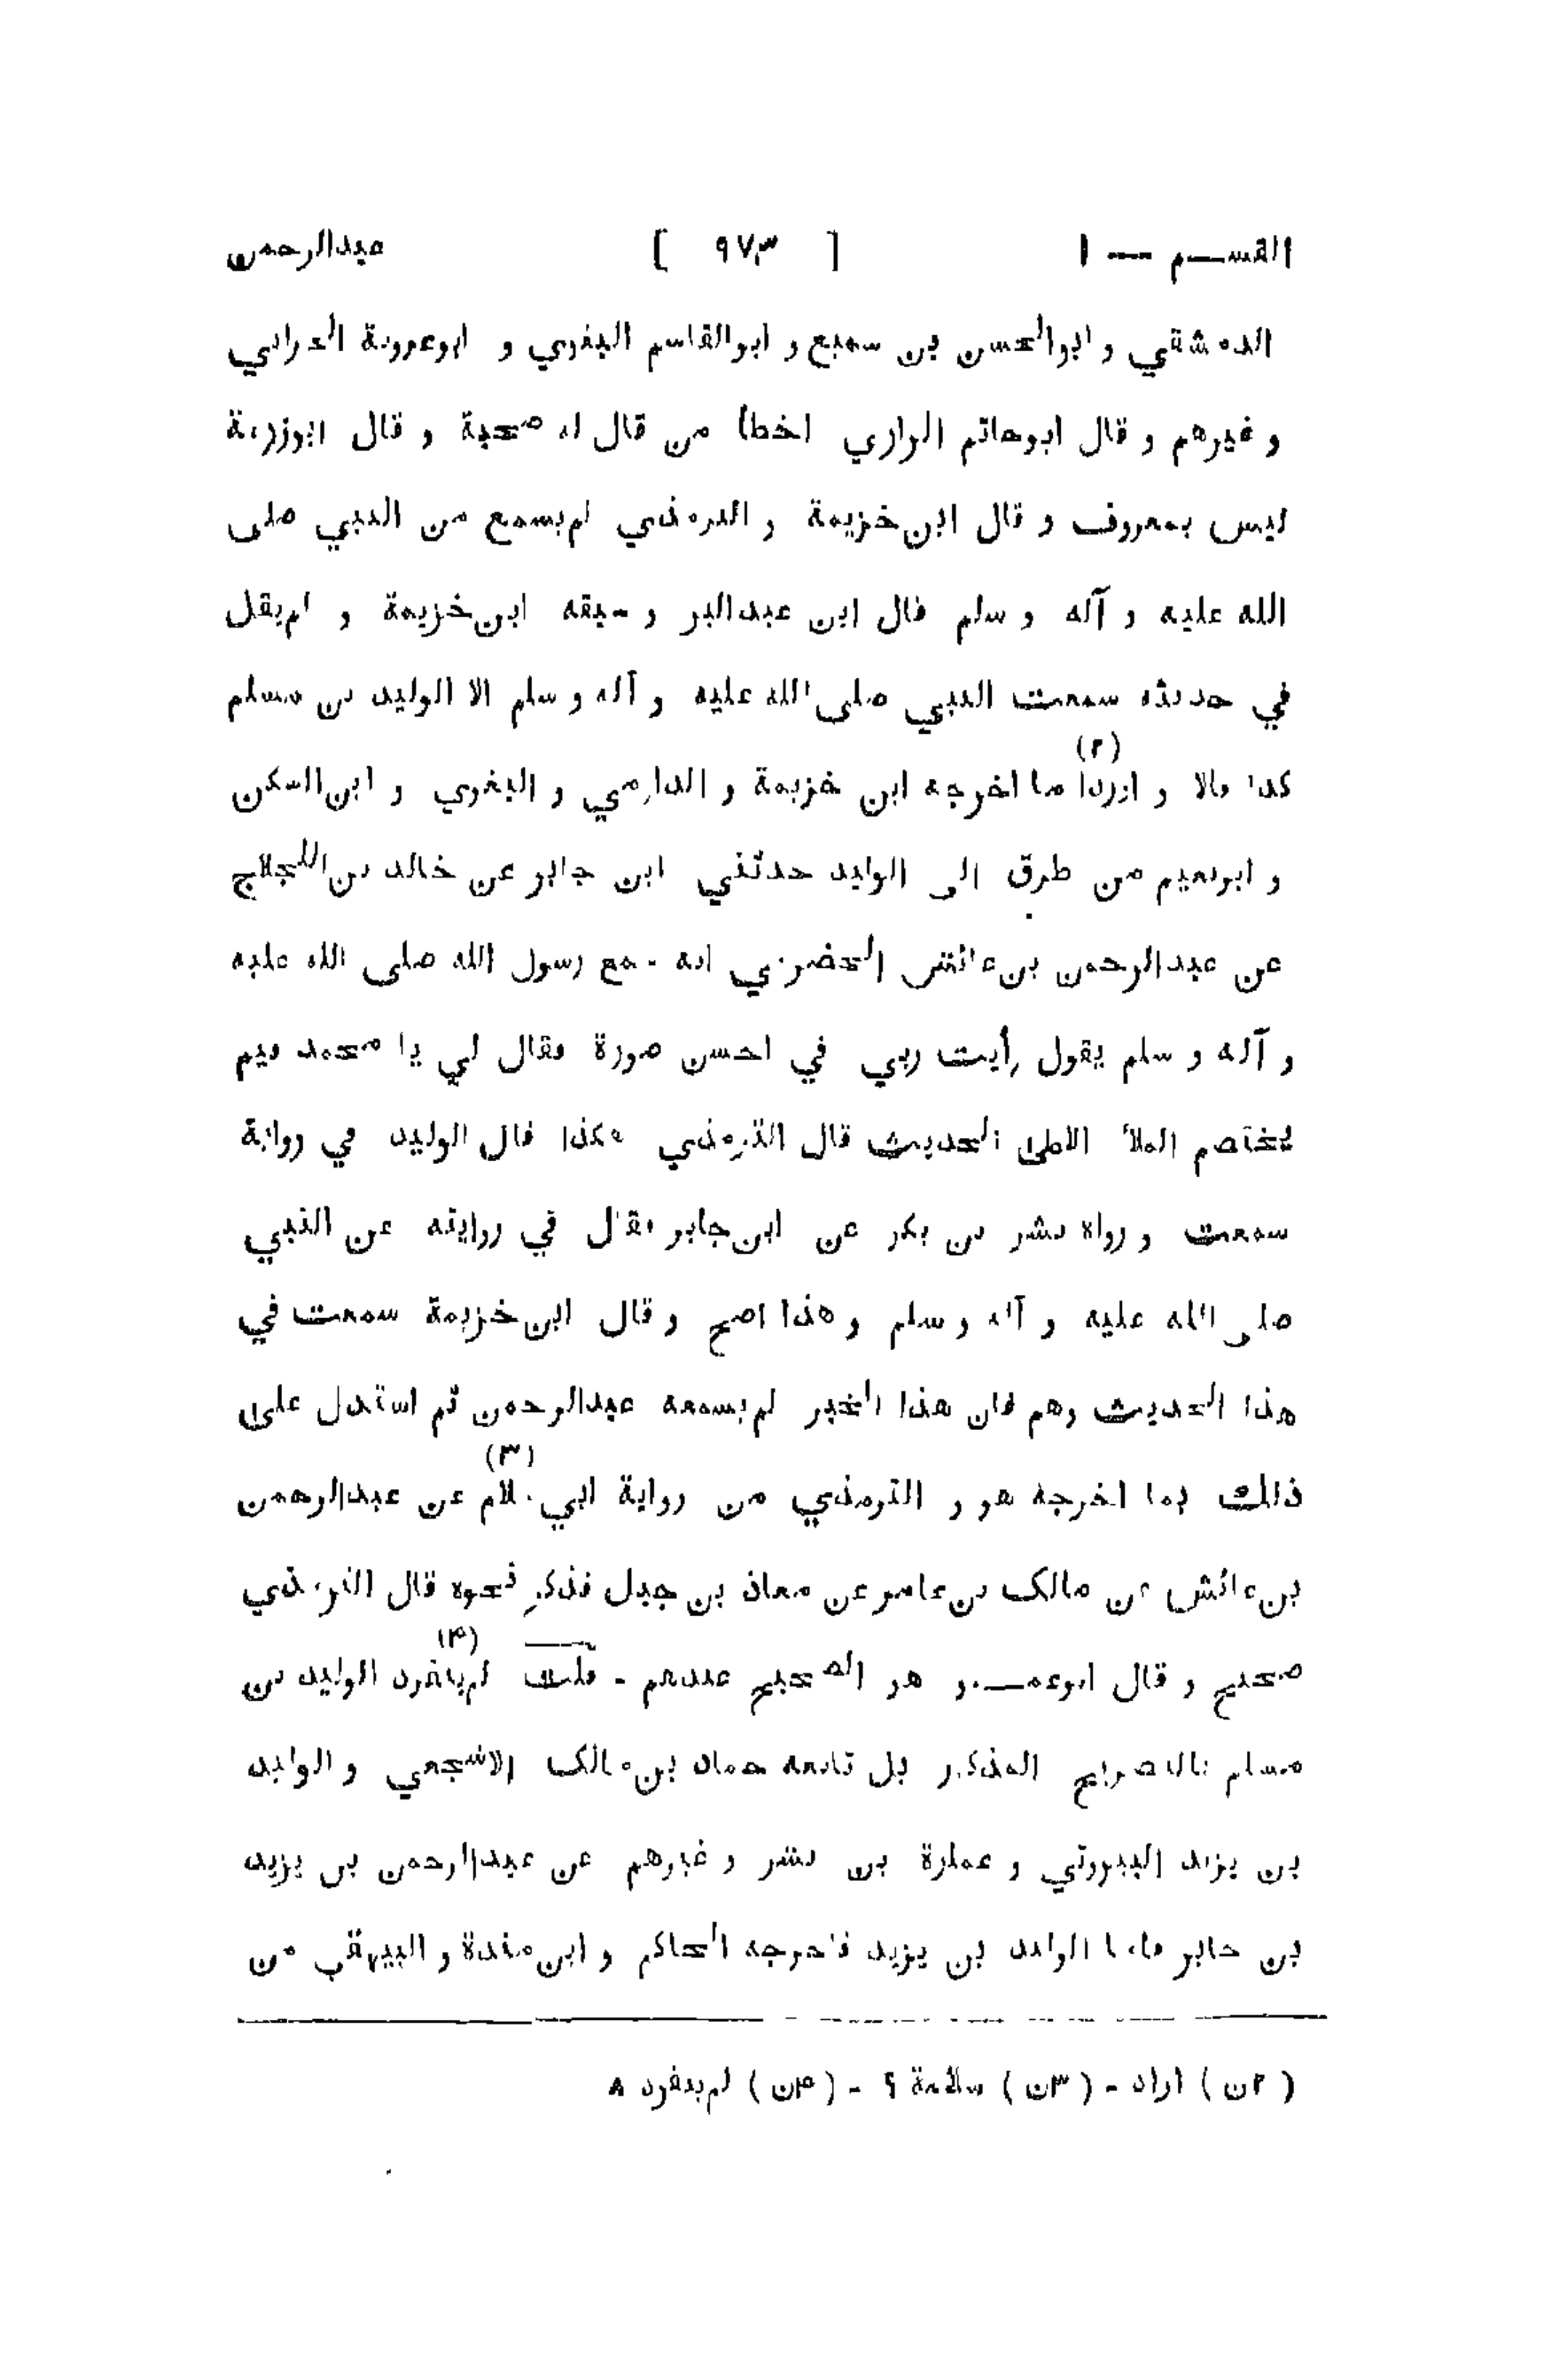 القسم — ١ [ ٩٧٣ ] عبدالرحمن
الدمشقي و ابوالحسن بن سميع و ابوالقاسم البغوي و ابوعروبة الحراني
و غيرهم و قال ابوحاتم الرازي اخطأ من قال له صحبة و قال ابوزرعة
ليس بمعروف و قال ابن خزيمة و الترمذي لم يسمع من النبي صلى
الله عليه و آله و سلم قال ابن عبدالبر و سبقه ابن خزيمة و لم يقل
في حديثه سمعت النبي صلى الله عليه و آله و سلم الا الوليد بن مسلم
كذا قالا و اوردا (٢) ما اخرجه ابن خزيمة و الدارمي و البغوي و ابن السكن
و ابونعيم من طرق الى الوليد حدثني ابن جابر عن خالد بن اللجلاج
عن عبدالرحمن بن عائش الحضرمي انه سمع رسول الله صلى الله عليه
و آله و سلم يقول رأيت ربي في احسن صورة فقال لي يا محمد فيم
يختصم الملأ الاعلى الحديث قال الترمذي هكذا قال الوليد في رواية
سمعت و رواه بشر بن بكر عن ابن جابر فقال في روايته عن النبي
صلى الله عليه و آله و سلم و هذا اصح و قال ابن خزيمة سمعت في
هذا الحديث وهم فان هذا الخبر لم يسمعه عبدالرحمن ثم استدل على
ذلك بما اخرجه هو و الترمذي من رواية ابي سلام (٣) عن عبدالرحمن
بن عائش عن مالك بن عامر عن معاذ بن جبل فذكر نحوه قال الترمذي
صحيح و قال ابوعمر و هو الصحيح عندهم - قلت لم ينفرد (٤) الوليد بن
مسلم بالتصريح المذكور بل تابعه حماد بن مالك الاشجعي و الوليد
بن يزيد البيروتي و عمارة بن بشر و غيرهم عن عبدالرحمن بن يزيد
بن جابر فاما الوليد بن يزيد فاخرجه الحاكم و ابن مندة و البيهقي من
( ٢ن ) اراد - ( ٣ن ) سلامة ؟ - ( ٤ن ) لم ينفرد ٨